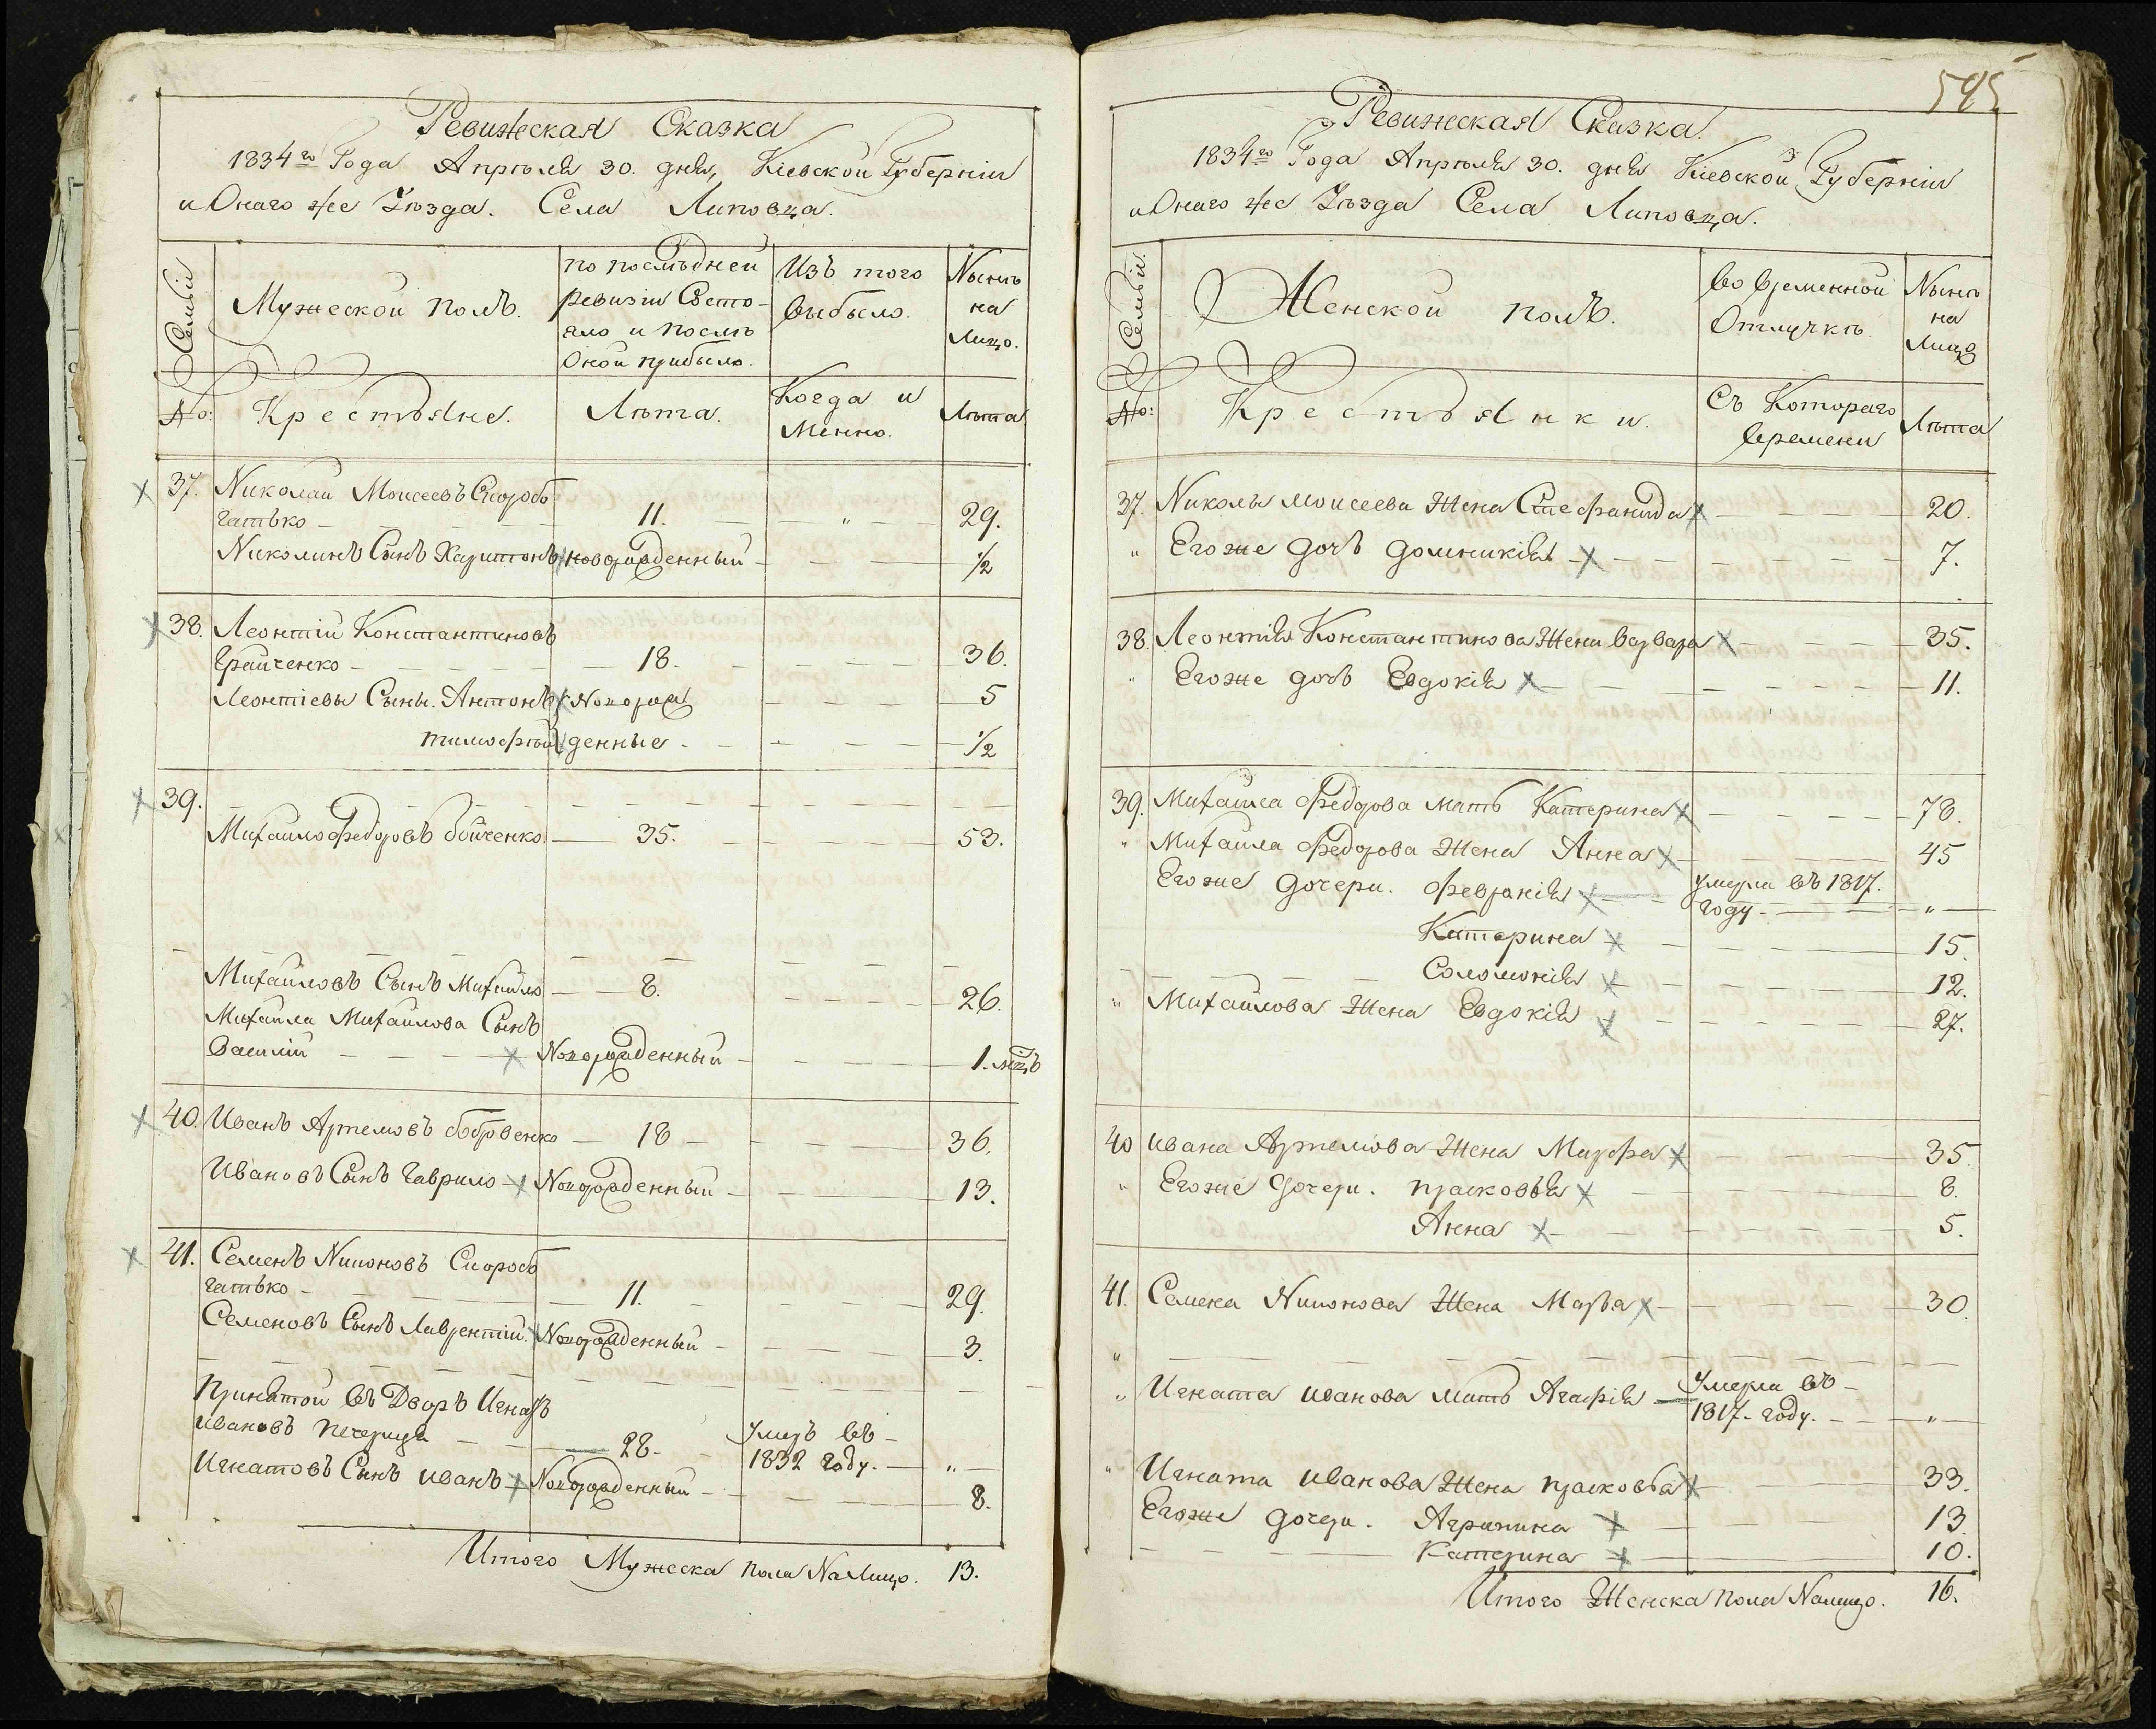 Ревижская Сказка
1834го Года Апрѣля 30. дня, Кіевской Губерніи
и Онаго же Уѣзда. Села Липовца.
№ Семьи
Мужеской полъ.
по послѣдней ревизіи Состо-
яло и послѣ Оной прибыло.
Изъ того выбыло.
Нынѣ на Лицо.
Крестьяне.
Лѣта.
Когда и Менно.
Лѣта
37. Николай Моисеевъ Скоробо
гатько 11. " 29.
Николинъ Сынъ Харитонъ новорожденный 1/2
38. Леонтій Константиновъ
Грайченко 18. 36.
Леонтіевы Сыны. Антонъ Новорож 5
тимофѣй денные 1/2
39.
Михайло Федоровъ бойченко 35. 53.
Михайловъ Сынъ Михайло 8. 26.
Михайла Михайлова Сынъ
Василій Новорожденный 1. мцъ
40. Иванъ Артемовъ бобровенко 18 36.
Ивановъ Сынъ Гаврило Новорожденный 13.
41. Семенъ Никоновъ Скоробо
гатько 11. 29.
Семеновъ Сынъ Лаврентій. Новорожденный 3.
Принятой въ Дворъ Игнатъ
Ивановъ печерица 28. умеръ въ 1832 году. "
Игнатовъ Сынъ Иванъ Новорожденный 8.
Итого Мужеска пола На Лицо. 13.
595
Ревижская Сказка.
1834го Года Апрѣля 30. дня Кіевской Губерніи
и Онаго же Уѣзда Села Липовца.
№ Семьи.
Женской полъ.
Во временной Отлучкѣ
Нынѣ на Лицо
Крестьянки.
Съ Котораго времени
Лѣта
37. Николы Моисеева Жена Стефанида 20.
" Егоже дочь домникія 7.
38. Леонтія Константинова Жена Варвара 35.
" Егоже дочь Евдокія 11.
39. Михайла Федорова мать Катерина 78.
" Михайла Федорова Жена Анна 45
Егоже дочери. Февронія умерла въ 1817.
году. "
Катерина 15.
Соломонія 12.
" Михайлова Жена Евдокія 27.
40 Ивана Артемова Жена Марфа 35.
" Егоже дочери. прасковья 8.
Анна 5.
41. Семена Никонова Жена Марья 30.
"
" Игната Иванова мать Агафія Умерла въ
1817. году. "
" Игната Иванова Жена прасковья 33.
Егоже дочери. Агрипина 13.
Катерина 10.
Итого Женска пола Налицо. 16.